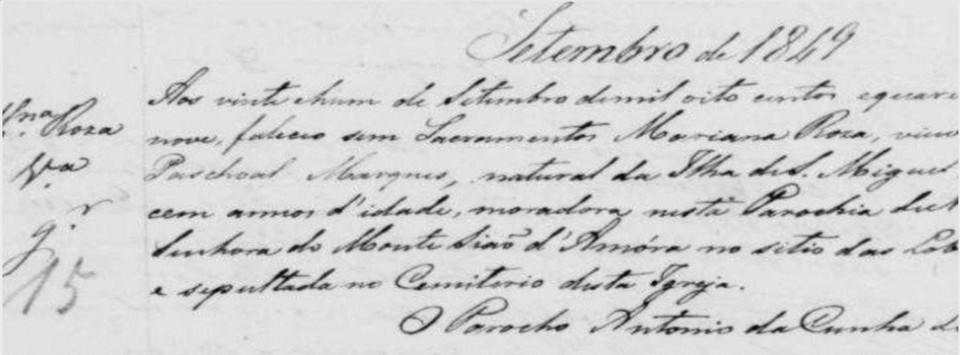 Setembro de 1849
Aos vinte ehum de Setembro demil oito centos equare
nove, faleceo sem Sacramentos Mariana Roza, viu
Paschoal Marques, natural da Ilha de S. Miguel
cem annos d'idade, moradora nesta Parochia de N
Senhora do Monte Sião d'Amóra no sitio das
e sepultada no Cemiterio desta Igreja.
O Parocho Antonio da Cunha
Roza
Va
g.
15